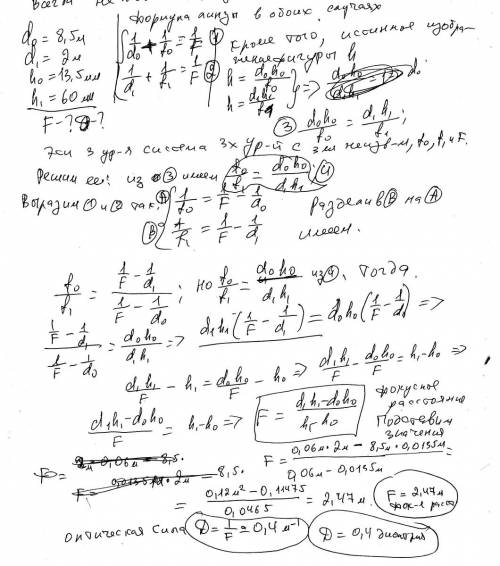 формула линзы в обоих случаях
d₀ = 8,5м
d₁ = 2м
h₀ = 13,5мм
h₁ = 60мм
F-?
1/d₀ + 1/f₀ = 1/F ①
1/d₁ + 1/f₁ = 1/F ②
кроме того, истинное
фигуры h
h = d₀h₀/f₀
h = d₁h₁/f₁ } =>
③ d₀h₀/f₀ = d₁h₁/f₁;
Эти 3 ур-я система 3х ур-й с 3мя неизв-и, f₀, f₁ и F.
Решим её: из ③ имеем f₀/f₁ = d₀h₀/d₁h₁; ④
Выразим ① и ② так:
Ⓐ 1/f₀ = 1/F - 1/d₀
Ⓑ 1/f₁ = 1/F - 1/d₁
Разделив Ⓑ на Ⓐ
имеем.
f₀/f₁ = (1/F - 1/d₁)/(1/F - 1/d₀); но f₀/f₁ = d₀h₀/d₁h₁ из ④. Тогда
(1/F - 1/d₁)/(1/F - 1/d₀) = d₀h₀/d₁h₁ => d₁h₁(1/F - 1/d₁) = d₀h₀(1/F - 1/d₀) =>
d₁h₁/F - h₁ = d₀h₀/F - h₀ => d₁h₁/F - d₀h₀/F = h₁-h₀ =>
(d₁h₁-d₀h₀)/F = h₁-h₀ => F = (d₁h₁-d₀h₀)/(h₁-h₀)
фокусное
расстояние
Подставим
значения
F = (0,06м · 2м - 8,5м · 0,0135м)/(0,06м - 0,0135м) =
= (0,12м² - 0,11475)/0,0465 = 2,47м.
F = 2,47м
оптическая сила D = 1/F = 0,4 м⁻¹
D = 0,4 диоптрия